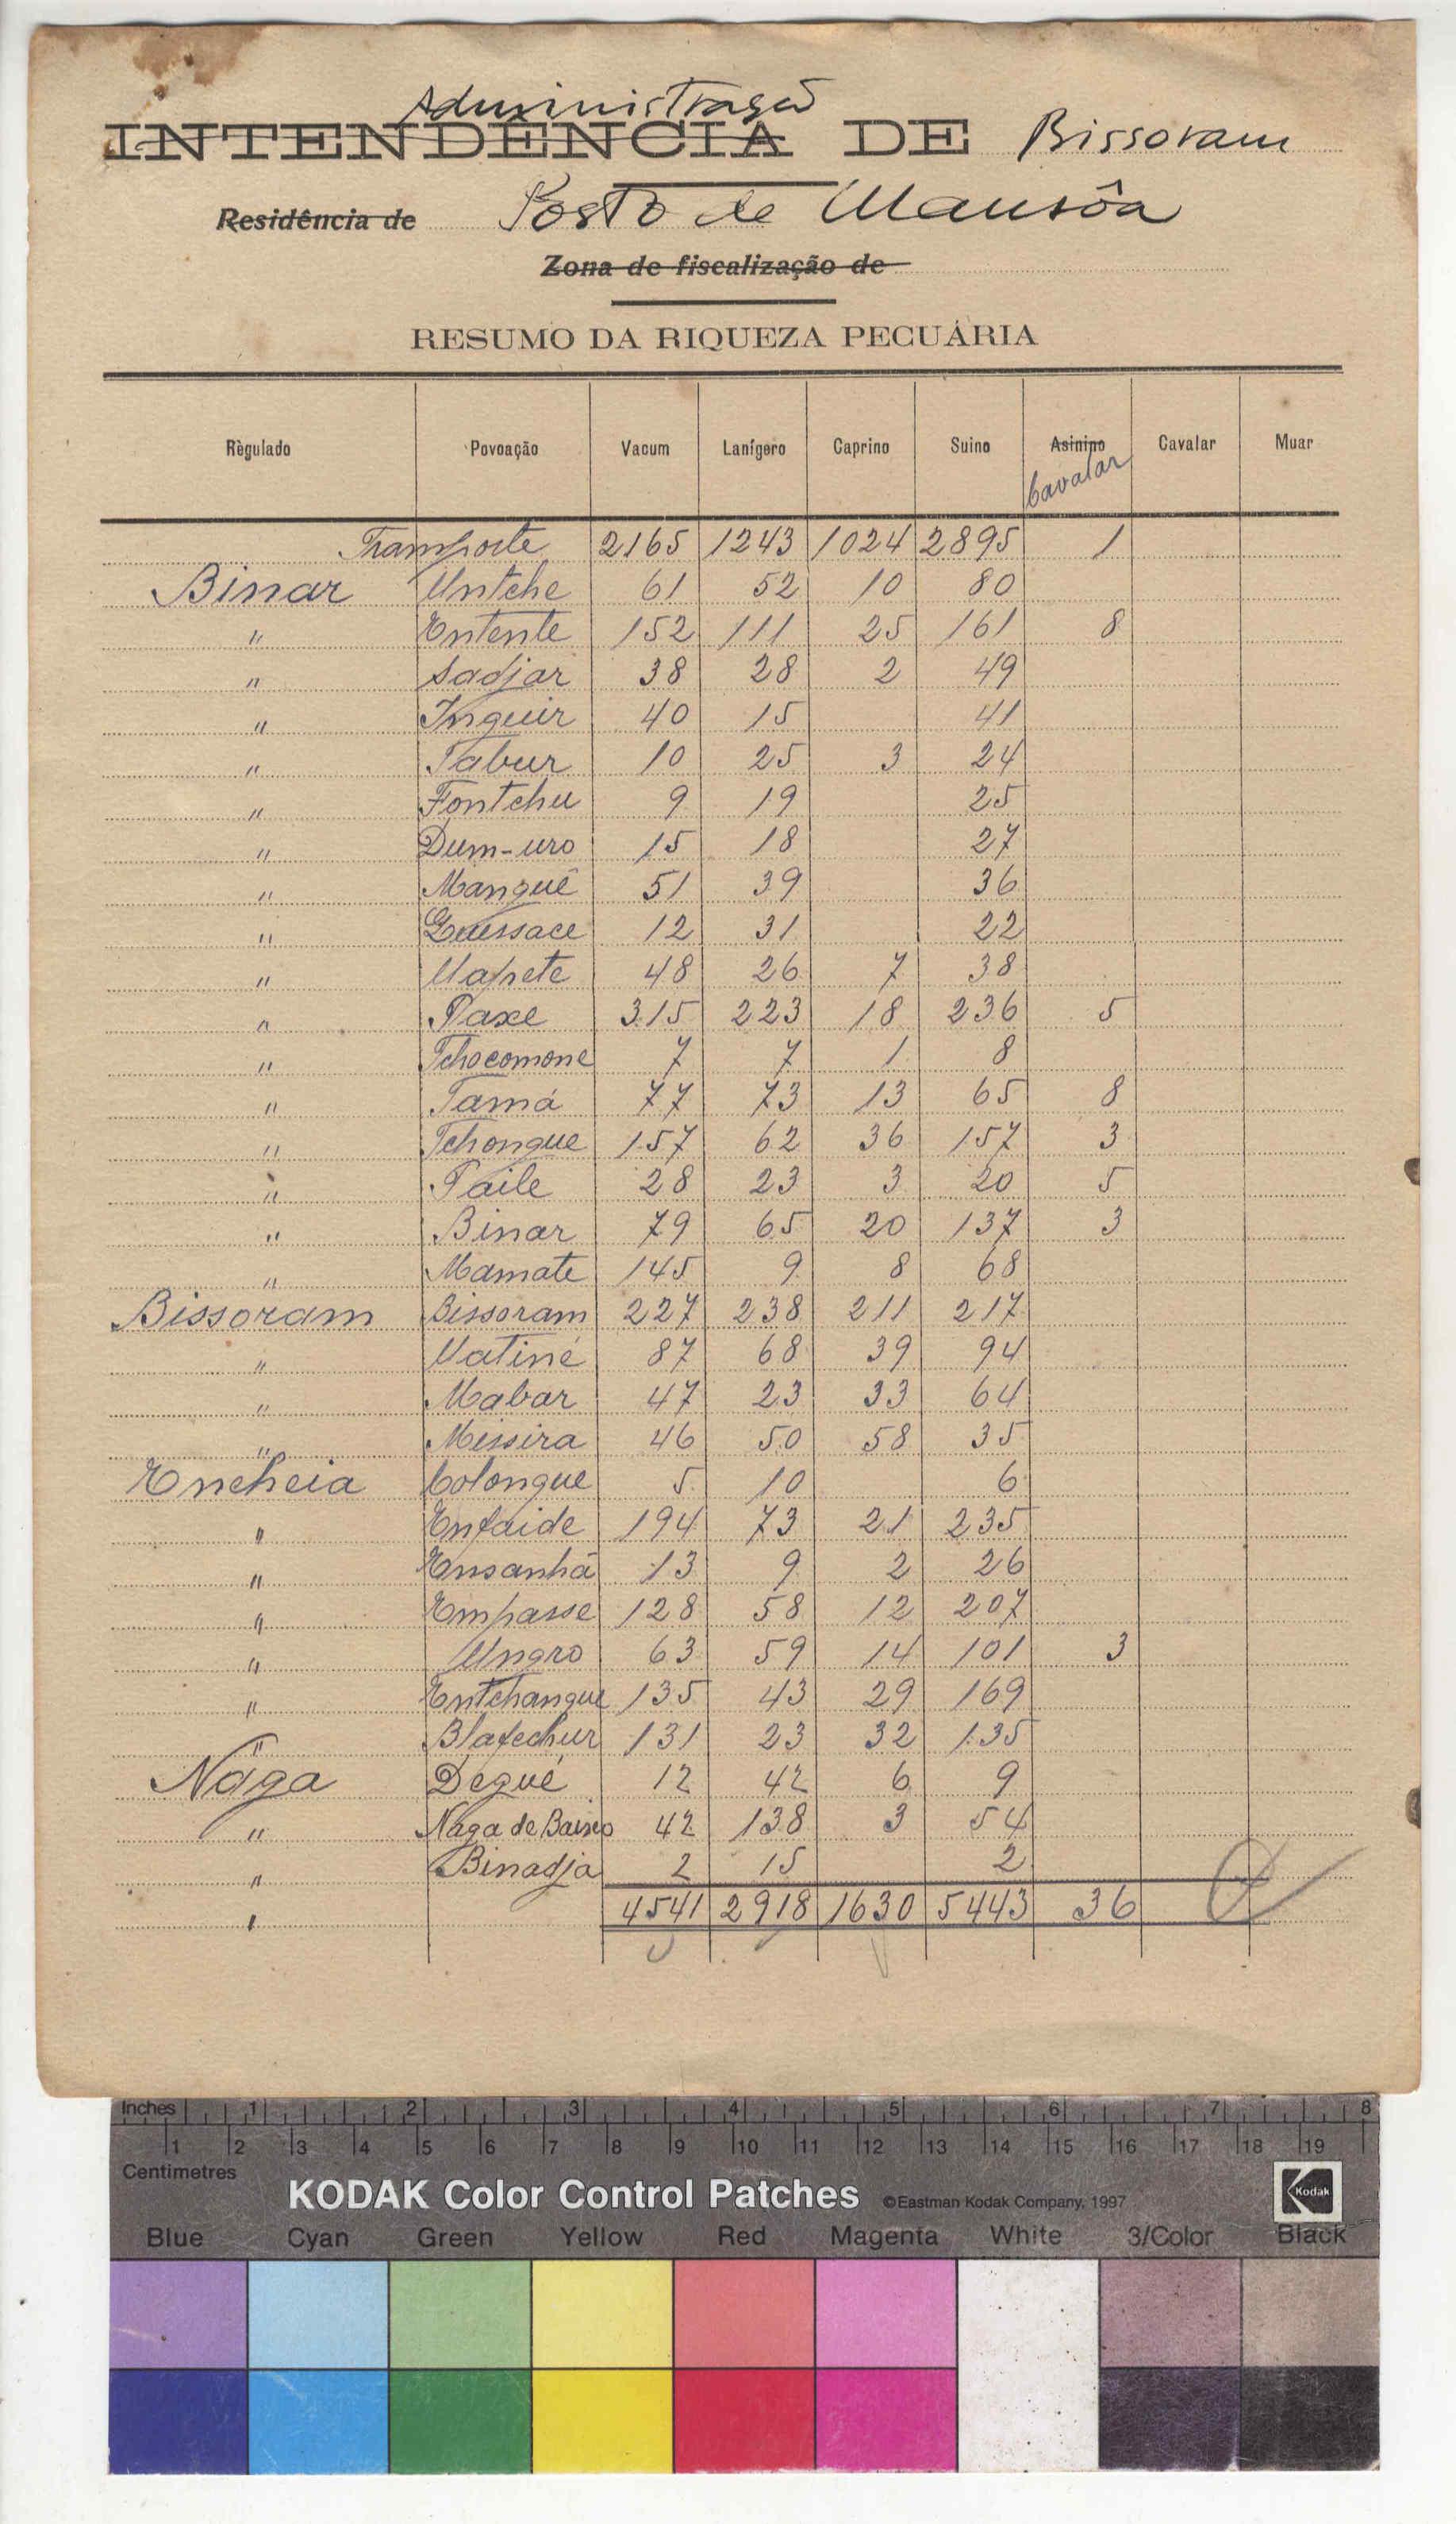 Administração
INTENDÊNCIA DE Bissoram
Residência de Posto de Mansôa
Zona de fiscalização de
RESUMO DA RIQUEZA PECUÁRIA
Règulado Povoação Vacum Lanígero Caprino Suino Asinino Cavalar Muar
Cavalar
Transporte 2165 1243 1024 2895 1
Binar Untche 61 52 10 80
" Entente 152 111 25 161 8
" Sadjar 38 28 2 49
" Inguir 40 15 41
" Tabur 10 25 3 24
" Fontchu 9 19 25
" Dum-uro 15 18 27
" Manguê 51 39 36
" Guessace 12 31 22
" Uapete 48 26 7 38
" Paxe 315 223 18 236 5
" Tchocomone 7 7 1 8
" Tamá 77 73 13 65 8
" Tchongue 157 62 36 157 3
" Paile 28 23 3 20 5
" Binar 79 65 20 137 3
" Mamate 145 9 8 68
Bissoram Bissoram 227 238 211 217
" Uatiné 87 68 39 94
" Mabar 47 23 33 64
" Missira 46 50 58 35
Encheia Colongue 5 10 6
" Enfaide 194 73 21 235
" Ensanhã 13 9 2 26
" Empasse 128 58 12 207
" Ungro 63 59 14 101 3
" Entchangue 135 43 29 169
" Blafechur 131 23 32 135
Nága Degué 12 42 6 9
" Nága de Baixo 42 138 3 54
" Binadja 2 15 2
" 4541 2918 1630 5443 36
Inches 1 2 3 4 5 6 7 8
1 2 3 4 5 6 7 8 9 10 11 12 13 14 15 16 17 18 19
Centimetres
KODAK Color Control Patches ©Eastman Kodak Company, 1997 Kodak
Blue Cyan Green Yellow Red Magenta White 3/Color Black